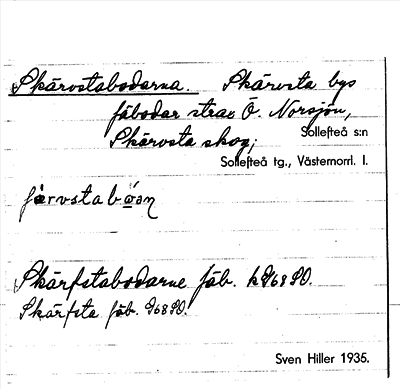 Skärvstabodarna. Skärvsta bys
fäbodar strax Ö. Norsjön,
Skärvsta skog; Sollefteå s:n
Sollefteå tg., Västernorrl. l.
Skärfstabodarne fäb.
Skärfsta fäb.
Sven Hiller 1935.